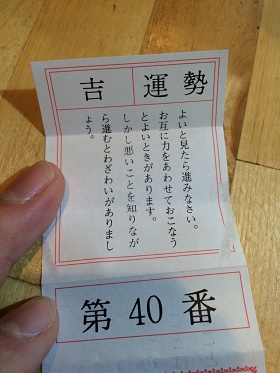 運勢 吉
よいと見たら進みなさい。
お互に力をあわせておこなう
とよいときがあります。
しかし悪いことを知りなが
ら進むとわざわいがありまし
ょう。
第40番